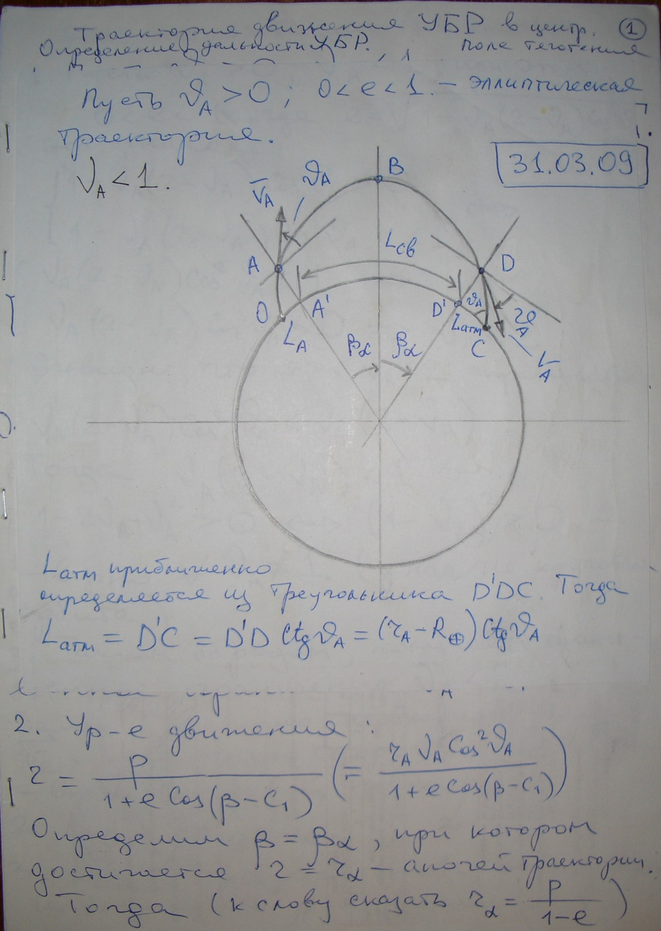 Траектория движения УБР в центр. ①
Определение дальности УБР. поле тяготения
Пусть ϑ_A > 0 ; 0 < e < 1. – эллиптическая
траектория.
ν_A < 1.
31.03.09
B
V̄_A ϑ_A
L_св
A D
O A' D' ϑ_A ϑ_A
L_A L_атм V_A
C
β_α β_α
L_атм приближенно
определяется из треугольника D'DC. Тогда
L_атм = D'C = D'D Ctg ϑ_A = (r_A – R_⊕) Ctg ϑ_A
2. Ур-е движения :
r = p / (1 + e Cos(β – C₁)) (= r_A ν_A Cos² ϑ_A / (1 + e Cos(β – C₁)))
Определим β = β_α , при котором
достигается r = r_α – апогей траектории.
Тогда (к слову сказать r_α = p / (1 – e))